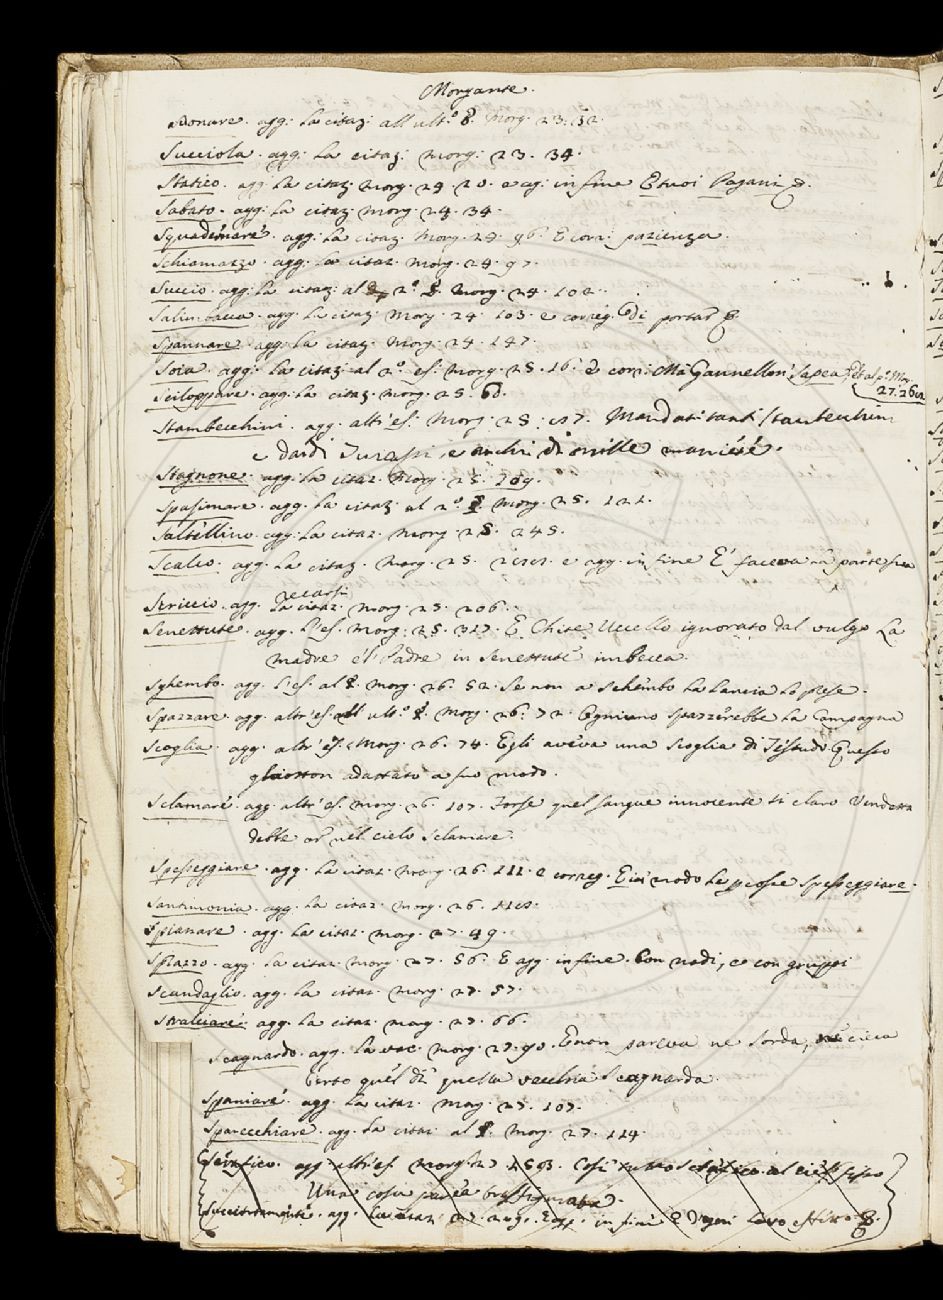 Morgante.
Sonare. agg: la citaz: all ult.º §. Morg. 23. 32.
Succiola. agg: la citaz: morg: 23. 34.
Statico. agg. la citaz. morg. 24 20. e ag: in fine E tuoi Pagani &.
Sabato. agg: la citaz. morg. 24. 34.
agg: la citaz. Morg. 24. 96. E corr: pazienza.
Schiamazzo. agg. la citaz. morg. 24. 97.
Succio. agg. la citaz. al 2.º §. Morg. 24. 102.
Salimbacca. agg. la citaz. Morg. 24. 103. e correg. di portar &
Spannare. agg. la citaz. Morg. 24. 147.
Soia. agg. la citaz. al 2.º es: morg. 25. 16. e corr: Ma Gannellon sapea & et al p.º Mor.
27. 26
Sciloppare. agg. la citaz. morg. 25. 60.
Stambecchini. agg. altr'es: Morg. 25. Mandati tanti stambecchini
e dardi e archi di mille maniere.
Stagnone. agg. la citaz. Morg. 25. 109.
Spasimare. agg. la citaz. al 2.º §. Morg. 25. 121.
Saltellino. agg. la citaz. morg. 25. 245.
Scalco. agg. la citaz. Morg. 25. e agg. in fine E faceva la parte sua
recarsi
Scriccio. agg. la citaz. Morg. 25. 206.
Senettute. agg. l'es. Morg. 25. 317. E Uccello ignorato dal vulgo La
madre e 'l Padre in senettute imbecca.
Sghembo. agg. l'es. al §. morg. 26. 52. Se non a schembo la lancia lo prese.
Spazzare. agg. altr'es. all ult.º §. Morg. 26. 72. Ognuno spazzerebbe la Campagna
Scoglia. agg. altr'es. Morg. 26. 74. Egli aveva una scoglia di Testudo Questo
ghiotton adattato a suo modo.
Sclamare. agg. altr'es. morg. 26. 107. Forse quel sangue innocente si claro Vendetta
debbe or nel cielo sclamare.
Spesseggiare. agg. la citaz. morg. 26. 111. e correg. E in modo le spesseggiare.
Santimonia. agg. la citaz. morg. 26.
Spianare. agg. la citaz. morg. 27. 49.
Spazzo. agg. la citaz. morg. 27. 56. E agg. in fine. Con nodi, e con gruppi
Scandaglio. agg. la citaz. morg. 27. 57.
Stralciare. agg. la citaz. morg. 27. 66.
Scagnardo. agg. la voc. morg. 27. 90. E non pareva ne sorda, nè cieca
Certo quel dì quella vecchia scagnarda.
Spaniare. agg. la citaz. Morg. 27. 107.
Sparecchiare. agg. la citaz. al §. Morg. 27. 114.
Serafico. agg. altr'es. Morg. 27 Così tutto serafico al ciel fisso
Una cosa parea trasfigurata.
agg. la citaz. 27. in fine E